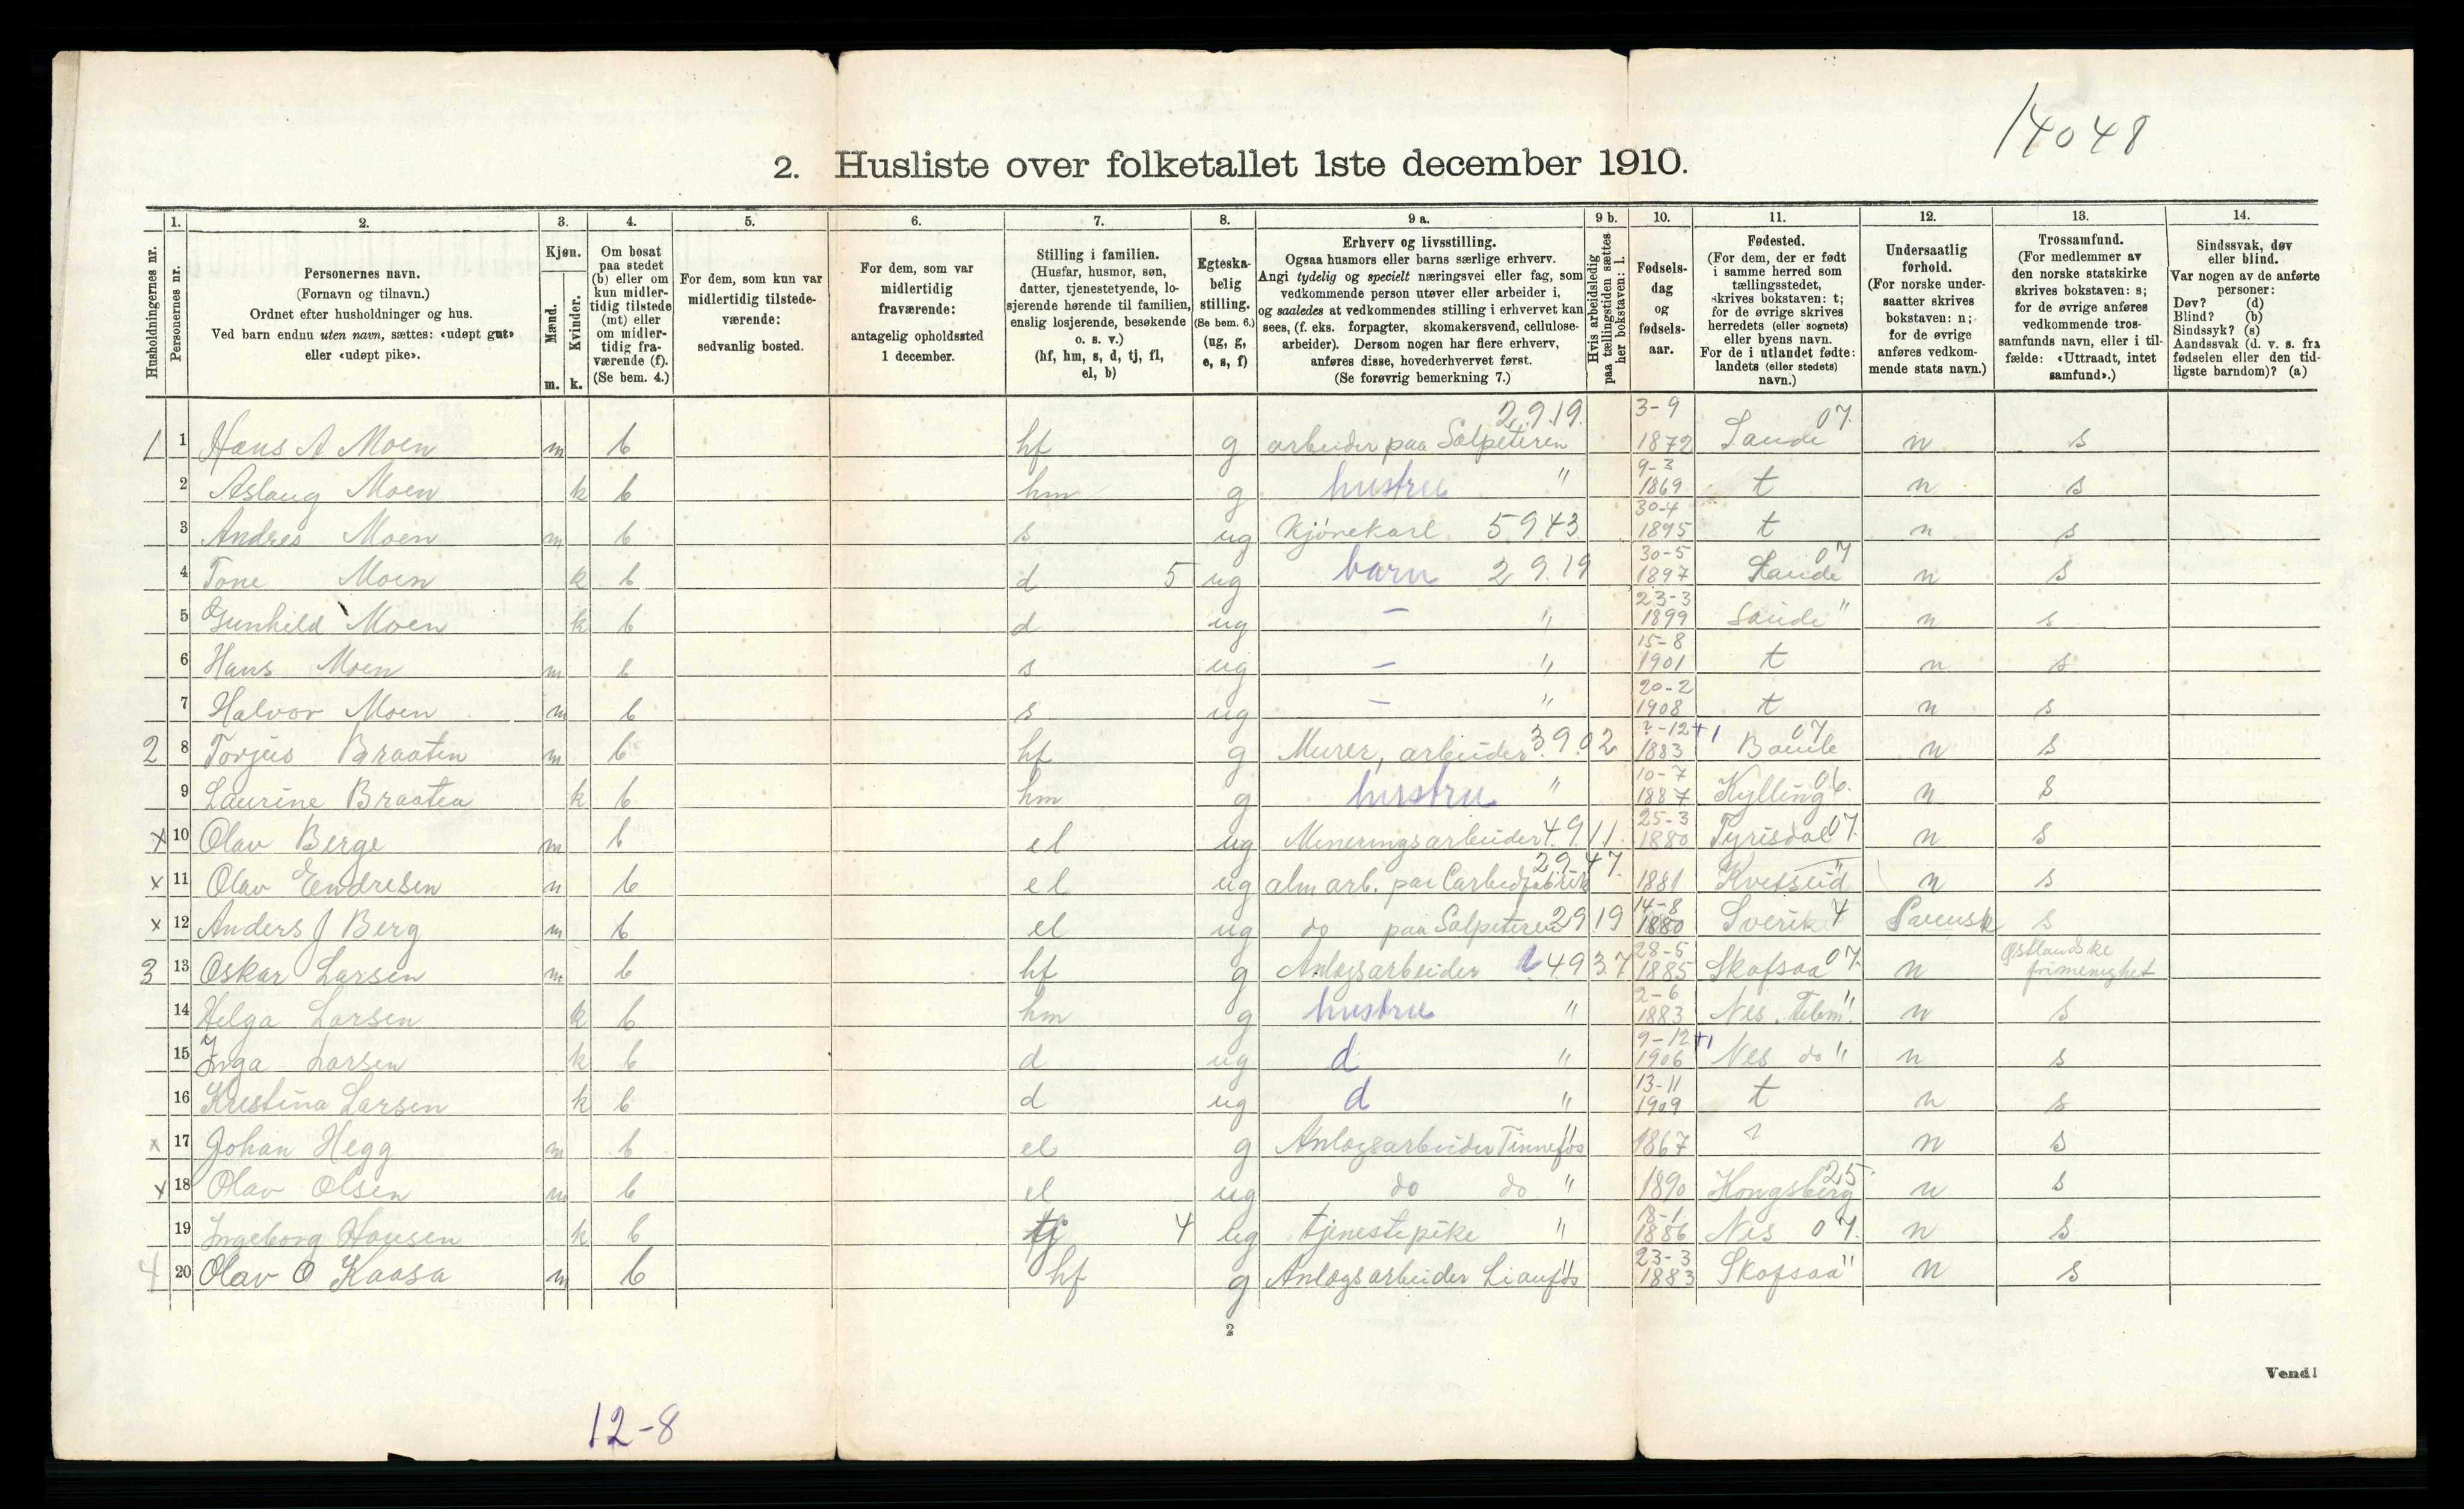 14048
2. Husliste over folketallet 1ste december 1910.
Husholdningernes nr.
1.
Personernes nr.
2.
Personernes navn.
(Fornavn og tilnavn.)
Ordnet efter husholdninger og hus.
Ved barn endnu uten navn, sættes: «udøpt gut»
eller «udøpt pike».
3.
Kjøn.
Mænd.
Kvinder.
m. k.
4.
Om bosat
paa stedet
(b) eller om
kun midler-
tidig tilstede
(mt) eller
om midler-
tidig fra-
værende (f).
(Se bem. 4.)
5.
For dem, som kun var
midlertidig tilstede-
værende:
sedvanlig bosted.
6.
For dem, som var
midlertidig
fraværende:
antagelig opholdssted
1 december.
7.
Stilling i familien.
(Husfar, husmor, søn,
datter, tjenestetyende, lo-
sjerende hørende til familien,
enslig losjerende, besøkende
o. s. v.)
(hf, hm, s, d, tj, fl,
el, b)
8.
Egteska-
belig
stilling.
(Se bem. 6.)
(ug, g,
e, s, f)
9 a.
Erhverv og livsstilling.
Ogsaa husmors eller barns særlige erhverv.
Angi tydelig og specielt næringsvei eller fag, som
vedkommende person utøver eller arbeider i,
og saaledes at vedkommendes stilling i erhvervet kan
sees, (f. eks. forpagter, skomakersvend, cellulose-
arbeider). Dersom nogen har flere erhverv,
anføres disse, hovederhvervet først.
(Se forøvrig bemerkning 7.)
9 b.
Hvis arbeidsledig
paa tællingstiden sættes
her bokstaven: l.
10.
Fødsels-
dag
og
fødsels-
aar.
11.
Fødested.
(For dem, der er født
i samme herred som
tællingsstedet,
skrives bokstaven: t;
for de øvrige skrives
herredets (eller sognets)
eller byens navn.
For de i utlandet fødte:
landets (eller stedets)
navn.)
12.
Undersaatlig
forhold.
(For norske under-
saatter skrives
bokstaven: n;
for de øvrige
anføres vedkom-
mende stats navn.)
13.
Trossamfund.
(For medlemmer av
den norske statskirke
skrives bokstaven: s;
for de øvrige anføres
vedkommende tros-
samfunds navn, eller i til-
fælde: «Uttraadt, intet
samfund».)
14.
Sindssvak, døv
eller blind.
Var nogen av de anførte
personer:
Døv? (d)
Blind? (b)
Sindssyk? (s)
Aandssvak (d. v. s. fra
fødselen eller den tid-
ligste barndom)? (a)
1 1 Hans A Moen m b hf g arbeider paa Salpeteren 2.9.19. 3-9 1872 Saude 07. n s
2 Aslaug Moen k b hm g hustru " 9-3 1869 t n s
3 Andres Moen m b s ug Kjørekarl 5943 30-4 1895 t n s
4 Tone Moen k b d 5 ug barn 2 9.19 30-5 1897 Saude 07 n s
5 Gunhild Moen k b d ug — " 23-3 1899 Saude " n s
6 Hans Moen m b s ug — " 15-8 1901 t n s
7 Halvor Moen m b s ug — " 20-2 1908 t n s
2 8 Torjus Braaten m b hf g Murer, arbeider 3.9.02 ?-12 +1 1883 Bamle 07 n s
9 Laurine Braaten k b hm g hustru " 10-7 1887 Kylling 06. n s
x 10 Olav Berge m b el ug Mineringsarbeider 4.9.11. 25-3 1880 Tyrisdal 07. n s
x 11 Olav Endresen m b el ug alm arb. paa Carbidfabrik 29.47. 1881 Kvitseid " n s
x 12 Anders J Berg m b el ug do paa Salpeteren 29.19 14-8 1880 Sverike 4 Svensk s
3 13 Oskar Larsen m b hf g Anlægsarbeider 49.37 28-5 1885 Skafsaa 07. n Østlandske frimenighet
14 Helga Larsen k b hm g hustru " 2-6 1883 Nes. Telem. " n s
15 Inga Larsen k b d ug d " 9-12 +1 1906 Nes do " n s
16 Kristina Larsen k b d ug d " 13-11 1909 t n s
x 17 Johan Hegg m b el g Anlægsarbeider Tinnefos " 1867 ? n s
x 18 Olav Olsen m b el ug do do " 1890 Kongsberg 25. n s
19 Ingeborg Hansen k b tj 4 ug tjenestepike " 18-1 1886 Nes 07. n s
4 20 Olav O Kaasa m b hf g Anlægsarbeider Lianfos " 23-3 1883 Skafsaa " n s
2
Vend!
12-8